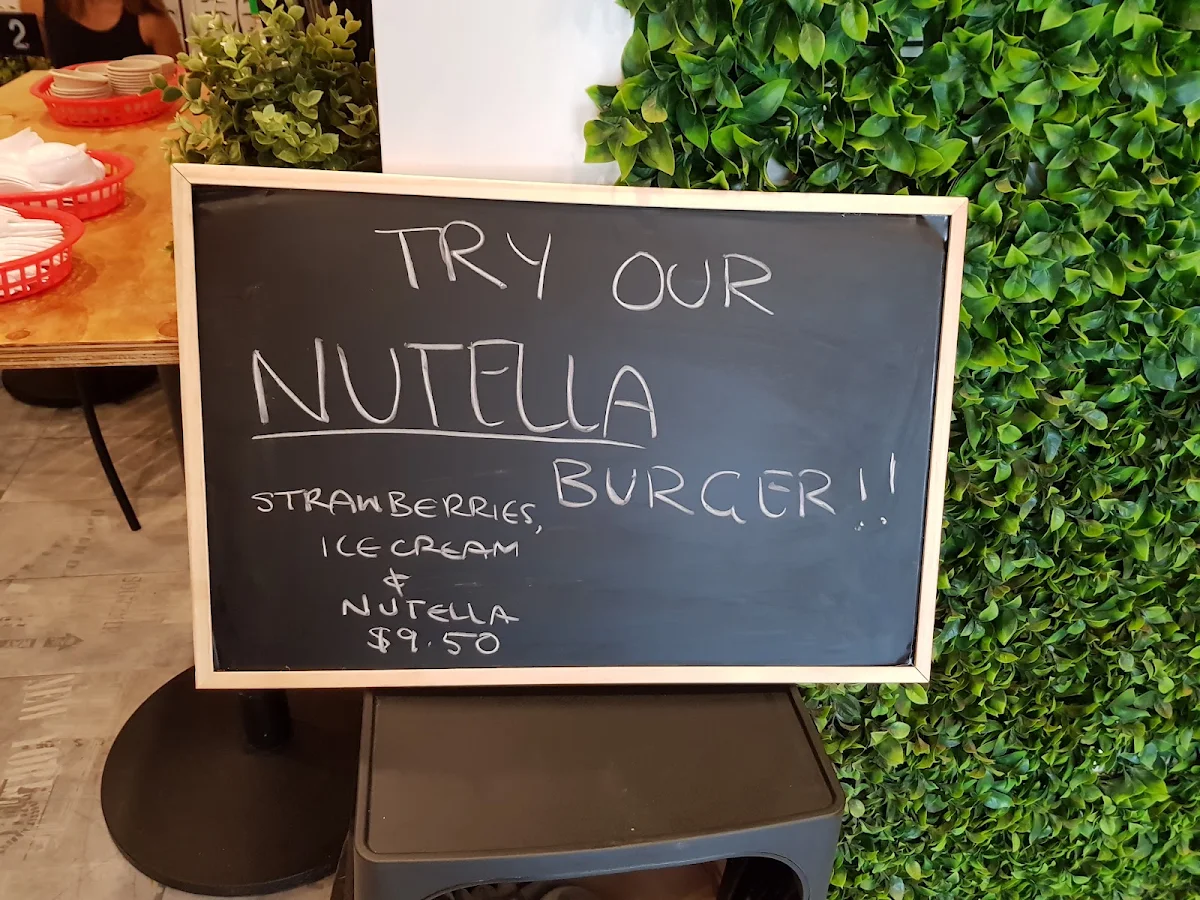 2
TRY OUR
NUTELLA
BURGER!!
STRAWBERRIES,
ICE CREAM
&
NUTELLA
$9.50
NEW YORK